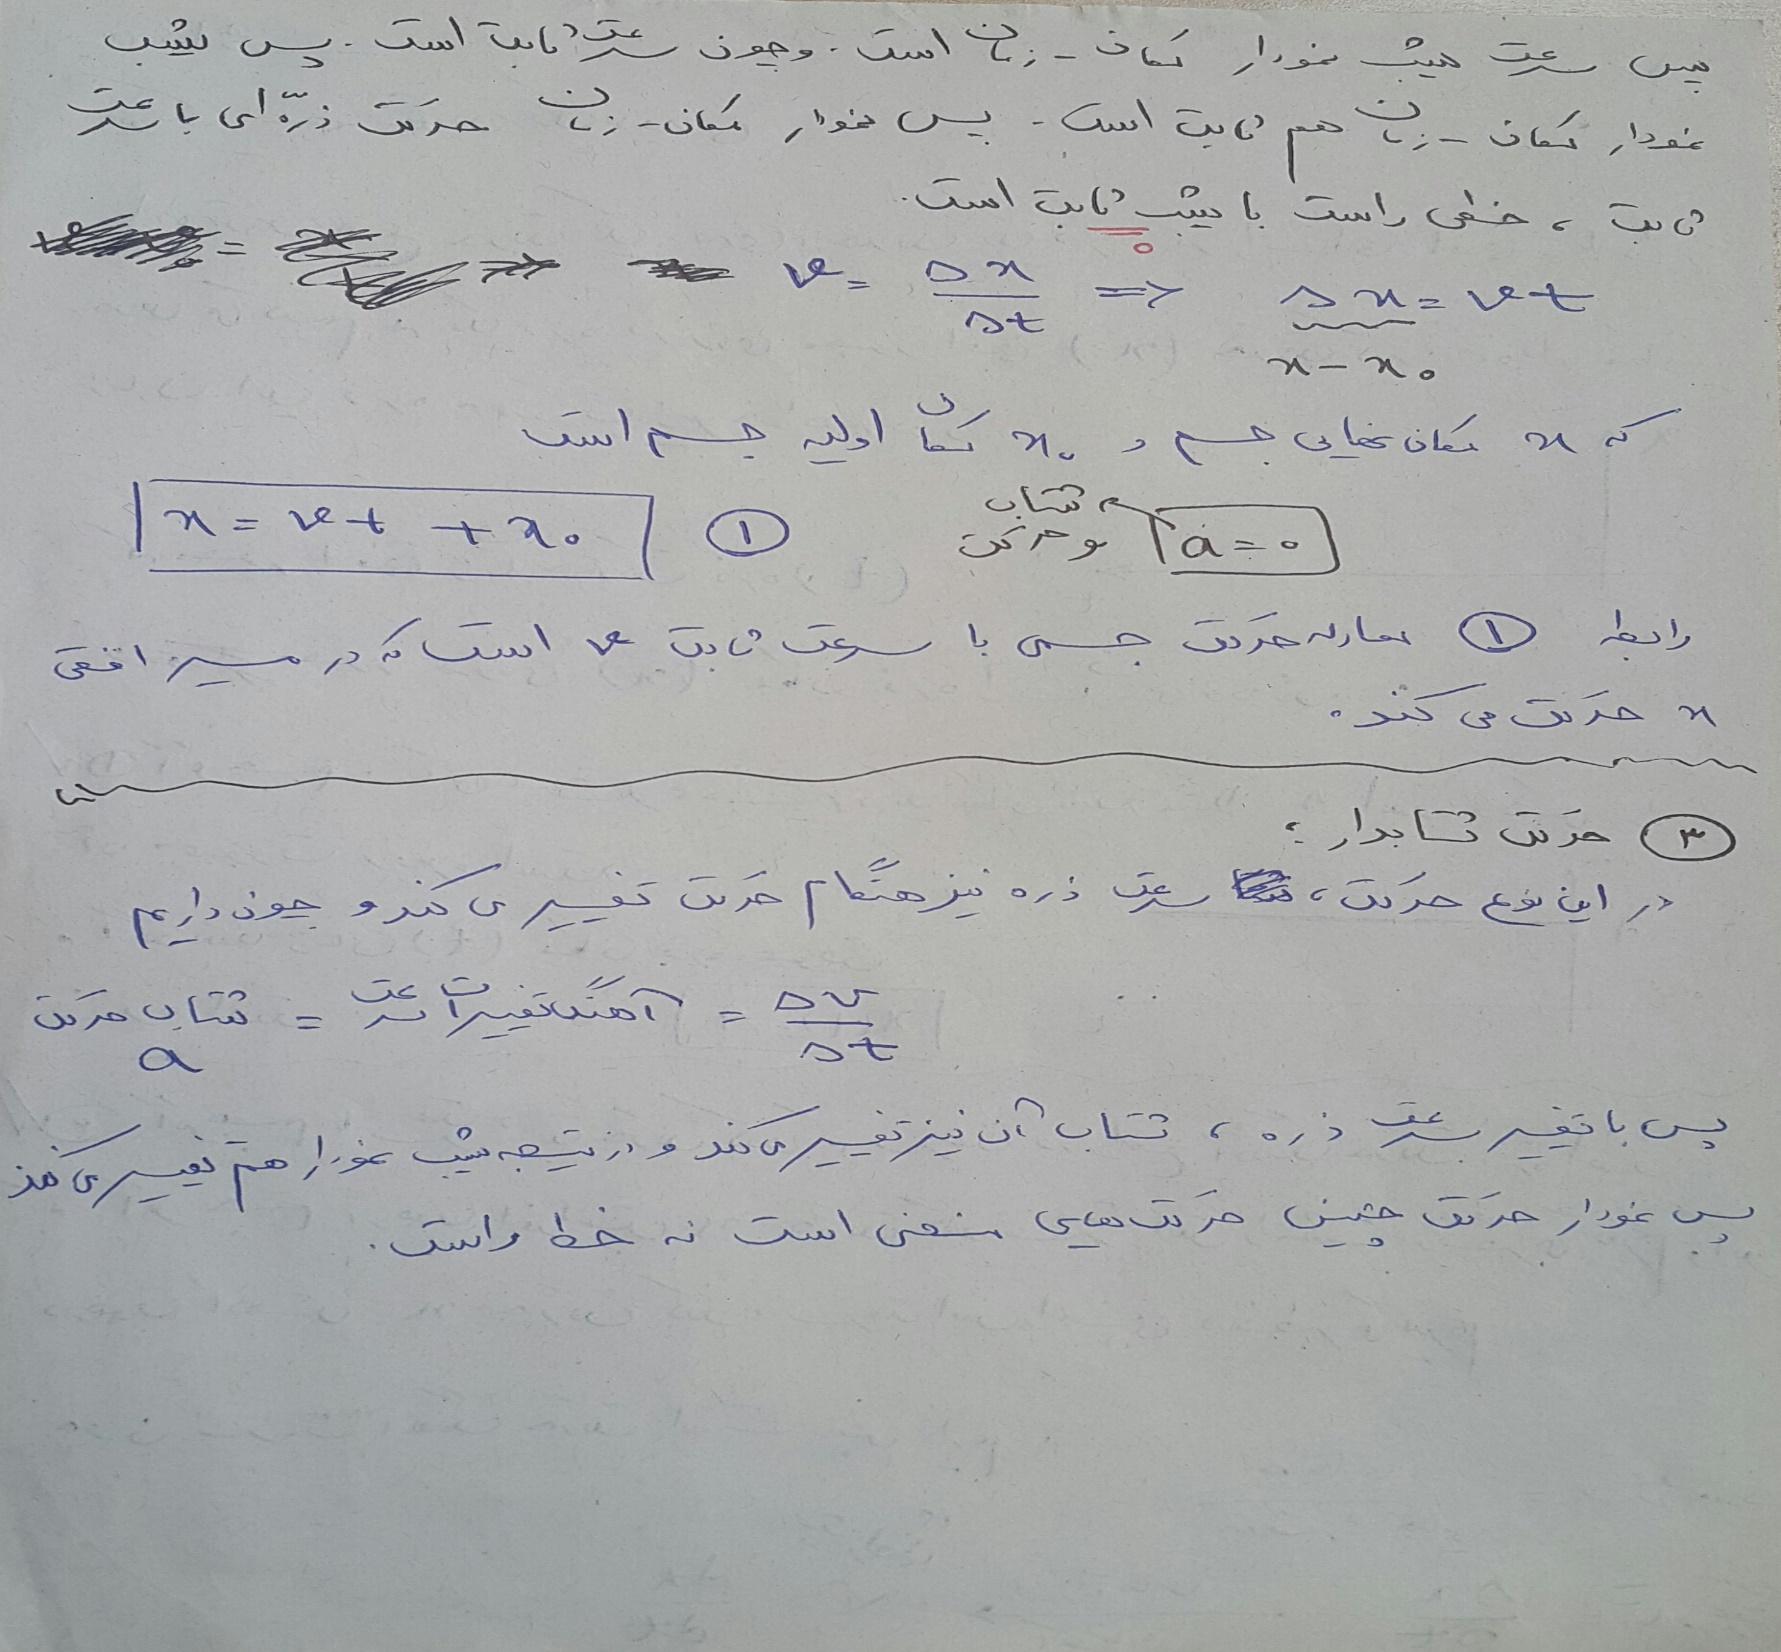 پس سرعت شیب نمودار مکان - زمان است. و چون سرعت ثابت است. پس شیب
نمودار مکان - زمان هم ثابت است. پس نمودار مکان - زمان حرکت ذرّه ای با سرعت
ثابت، خطی راست با شیب ثابت است.
v = Δx/Δt => Δx = vt
x - x₀
که x مکان نهایی جسم و x₀ مکان اولیه جسم است
x = vt + x₀ ① a = 0 شتاب حرکت
رابطه ① معادله حرکت جسمی با سرعت ثابت v است که در مسیر افقی
x حرکت می کند.
③ حرکت شتابدار:
در این نوع حرکت، سرعت ذره نیز هنگام حرکت تغییر می کند و چون داریم
شتاب حرکت a = آهنگ تغییرات سرعت = Δv/Δt
پس با تغییر سرعت ذره، شتاب آن نیز تغییر می کند و در نتیجه شیب نمودار هم تغییر می کند
پس نمودار حرکت چنین حرکت هایی منحنی است نه خط راست.